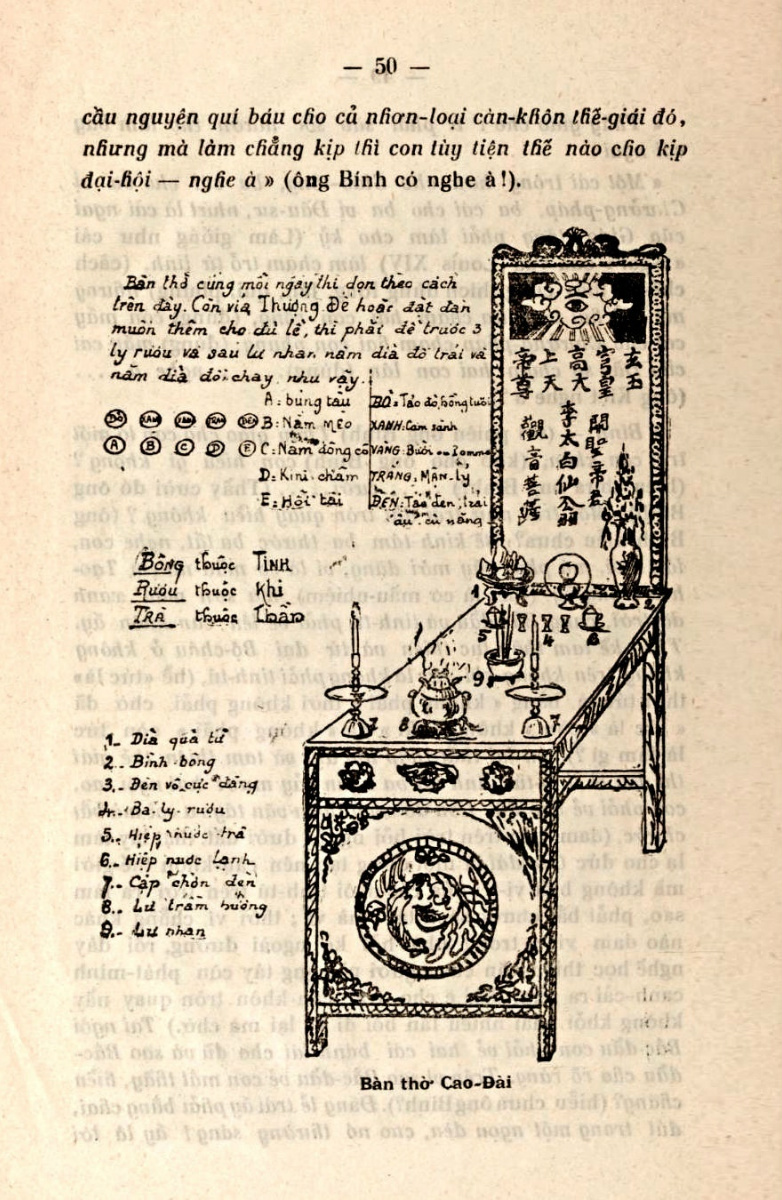 — 50 —
cầu nguyện quí báu cho cả nhơn-loại càn-khôn thế-giái đó,
nhưng mà làm chẳng kịp thì con tùy tiện thế nào cho kịp
đại-hội — nghe à » (ông Bính có nghe à !).
Bàn thờ cúng mỗi ngày thì dọn theo cách
trên đây. Còn vía Thượng Đế hoặc đàn
muốn thêm cho đủ lễ, thì phải để trước 3
ly rượu và sau lư nhan năm dĩa đồ trái và
năm dĩa đồ chay như vầy.
A: bún tàu
B: Nấm mèo
C: Nấm đông cô
D: Kim châm
E: Hột tai
ĐỎ: Táo đỏ, hồng tươi
XANH: Cam sành
VÀNG: Bưởi ou Pomme
TRẮNG: Mận, ly
ĐEN: Táo đen, trái
ấu, củ năng
A B C D E
BÔNG thuộc TINH
RƯỢU thuộc Khí
TRÀ thuộc Thần
1- Dĩa quả tử
2.- Bình bông
3.- Đèn vô cực đăng
4.- Ba ly rượu
5.- Hiệp nước trà
6.- Hiệp nước lạnh
7.- Cặp chơn đèn
8.- Lư trầm hương
9.- Lư nhan
玄穹高上帝
玉皇大天尊
關聖帝君
李太白仙翁
觀音菩薩
1
2
5
4
6
9
7
8
7
Bàn thờ Cao-Đài